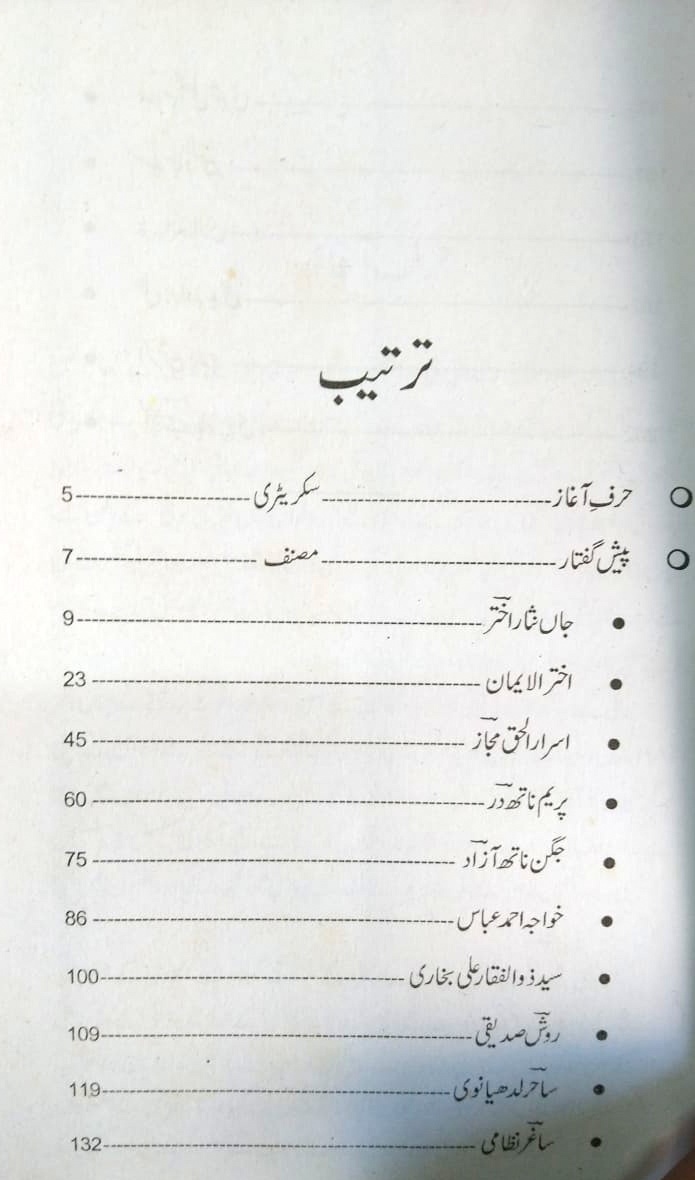 ترتیب
حرفِ آغاز ------------------------ سکریٹری ------------------------ 5
پیش گفتار ------------------------ مصنف ------------------------ 7
جاں نثار اختؔر ------------------------ 9
اختر الایمان ------------------------ 23
اسرار الحق مجاؔز ------------------------ 45
پریم ناتھ دؔر ------------------------ 60
جگن ناتھ آزاؔد ------------------------ 75
خواجہ احمد عباس ------------------------ 86
سید ذوالفقار علی بخاری ------------------------ 100
روؔش صدیقی ------------------------ 109
ساحؔر لدھیانوی ------------------------ 119
ساغؔر نظامی ------------------------ 132